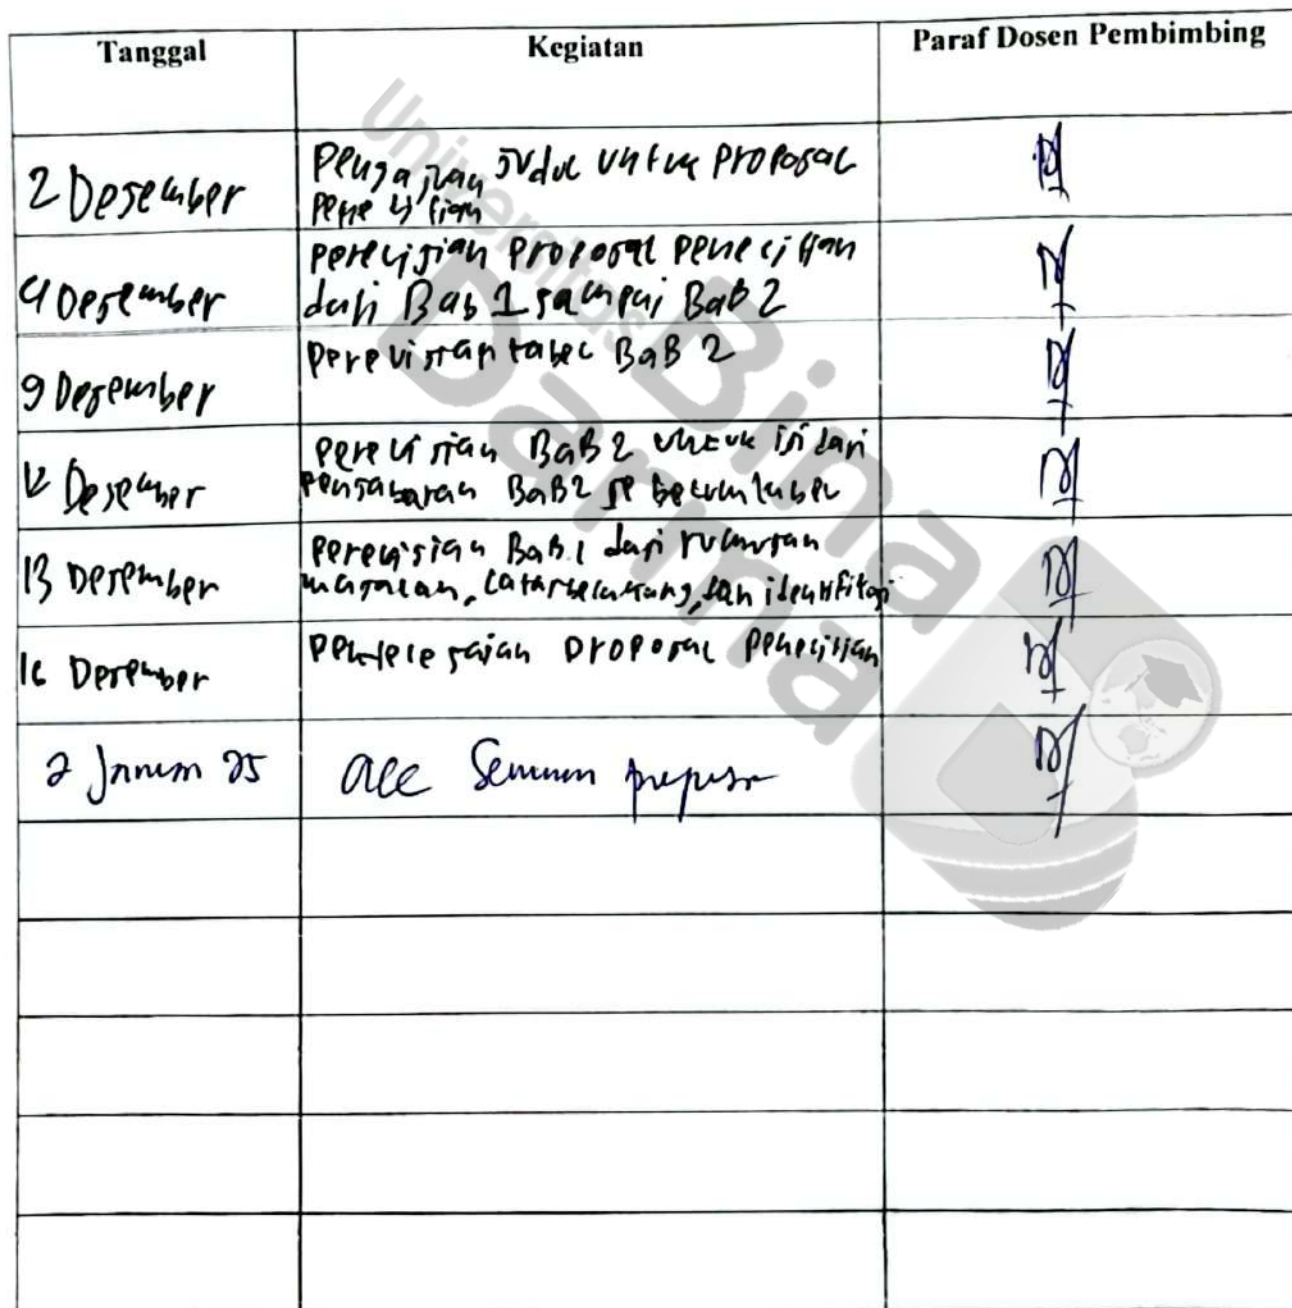 Tanggal Kegiatan Paraf Dosen Pembimbing
2 Desember
Pengajuan judul untuk proposal
penelitian
4 Desember
perevisian proposal penelitian
dari Bab 1 sampai Bab 2
9 Desember
perevisian tabel BaB 2
12 Desember
perevisian BaB 2 untuk isi dari
penjabaran BaB2 sebelum tabel
13 Desember
perevisian BaB 1 dari rumusan
masalah, latar belakang, dan identifikasi
16 Desember
penyelesaian proposal penelitian
2 Januari 25
acc Seminar proposal
Universitas
Bina
Darma